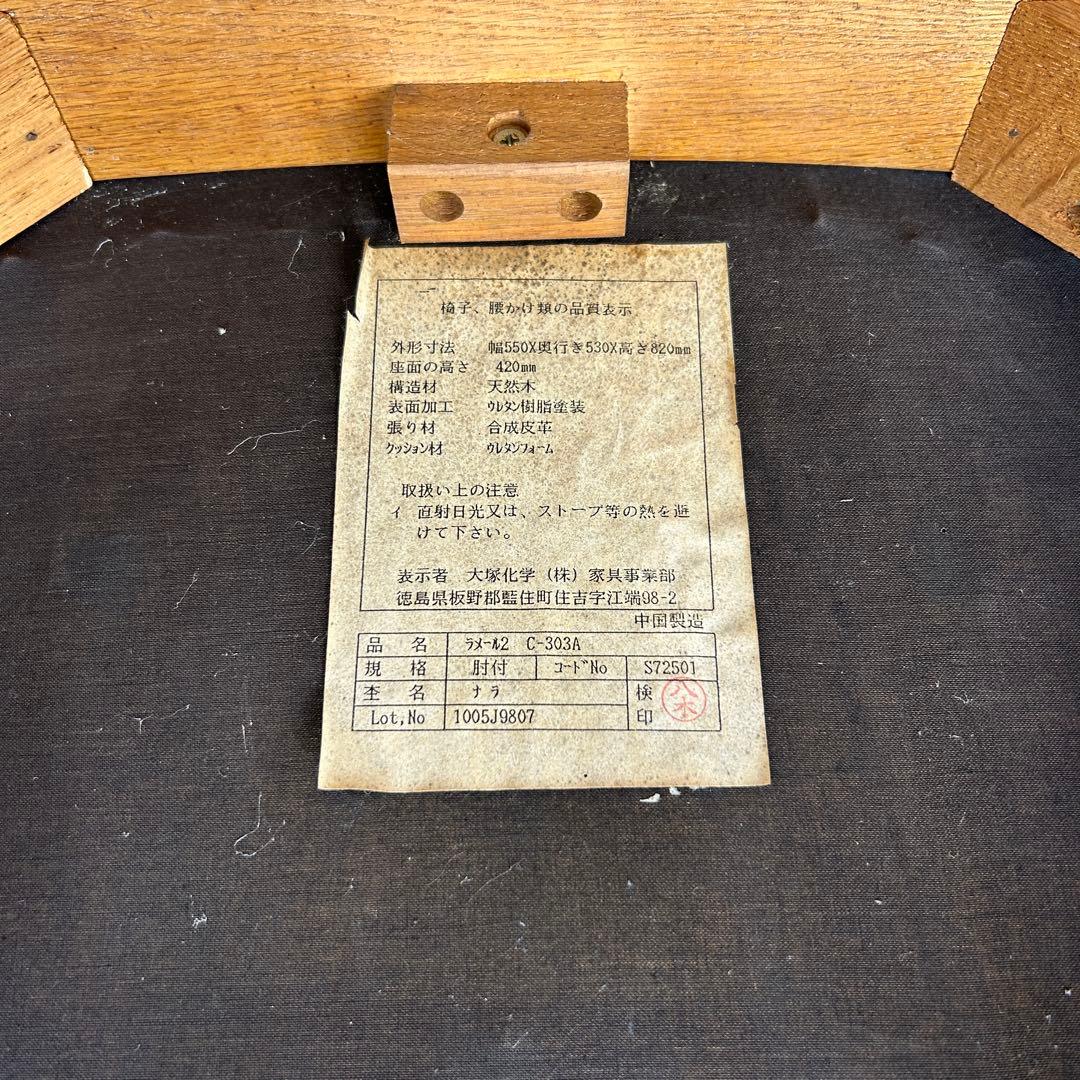 椅子、腰かけ類の品質表示
外形寸法 幅550X奥行き530X高さ820mm
座面の高さ 420mm
構造材 天然木
表面加工 ウレタン樹脂塗装
張り材 合成皮革
クッション材 ウレタンフォーム
取扱い上の注意
イ 直射日光又は、ストーブ等の熱を避
けて下さい。
表示者 大塚化学(株)家具事業部
徳島県板野郡藍住町住吉字江端98-2
中国製造
品 名 ラメール2 C-303A
規 格 肘付 コードNo S72501
杢 名 ナラ 検
Lot,No 1005J9807 印
八木